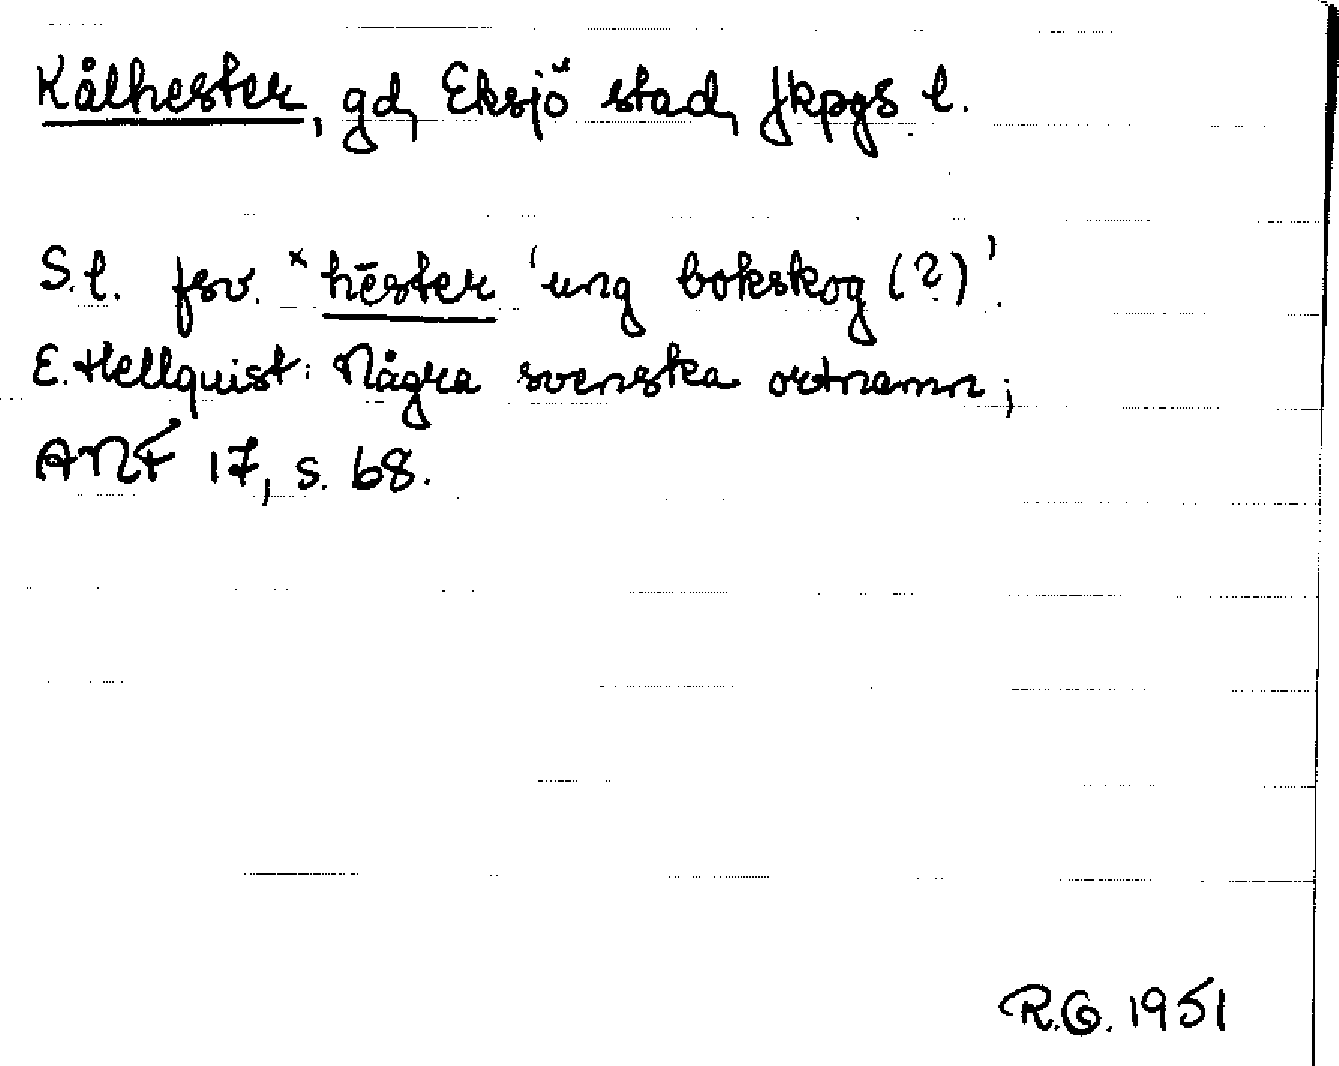 Kålhester, gd, Eksjö stad, Jkpgs l.
S.l. fsv. *hēster 'ung bokskog (?)'.
E. Hellquist: Några svenska ortnamn;
ANF 17, s. 68.
R.G. 1951